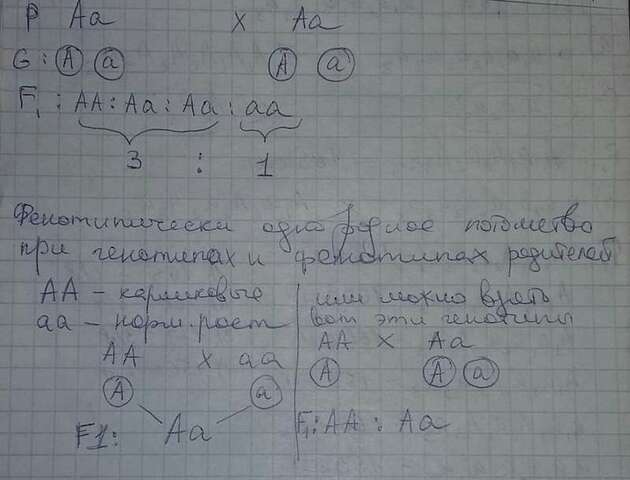 P Aa x Aa
G: A a A a
F1: AA: Aa: Aa: aa
3 : 1
Фенотипически однородное потомство
при генотипах и фенотипах родителей
AA - карликовые
aa - норм. рост
AA x aa
A a
F1: Aa
или можно взять
вот эти генотипы
AA x Aa
A A a
F1: AA : Aa